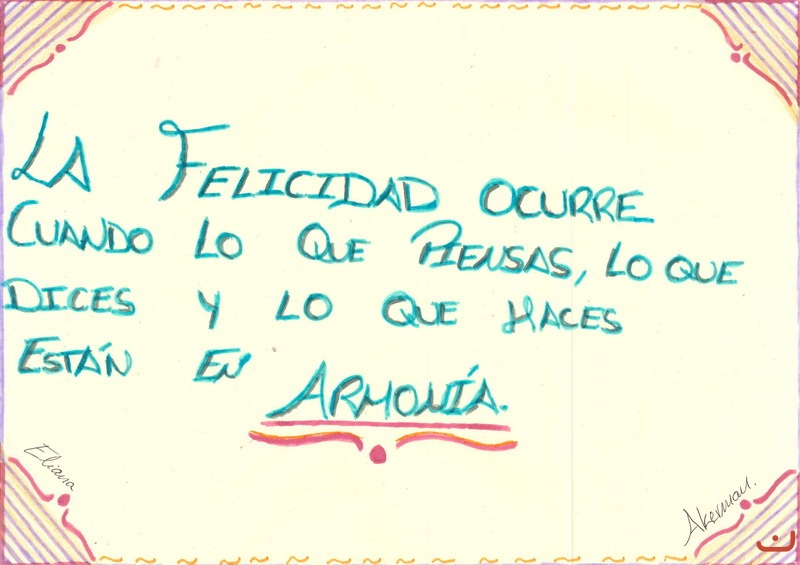 LA FELICIDAD OCURRE
CUANDO LO QUE PIENSAS, LO QUE
DICES Y LO QUE HACES
ESTÁN EN ARMONÍA.
Eliana
Akerman.